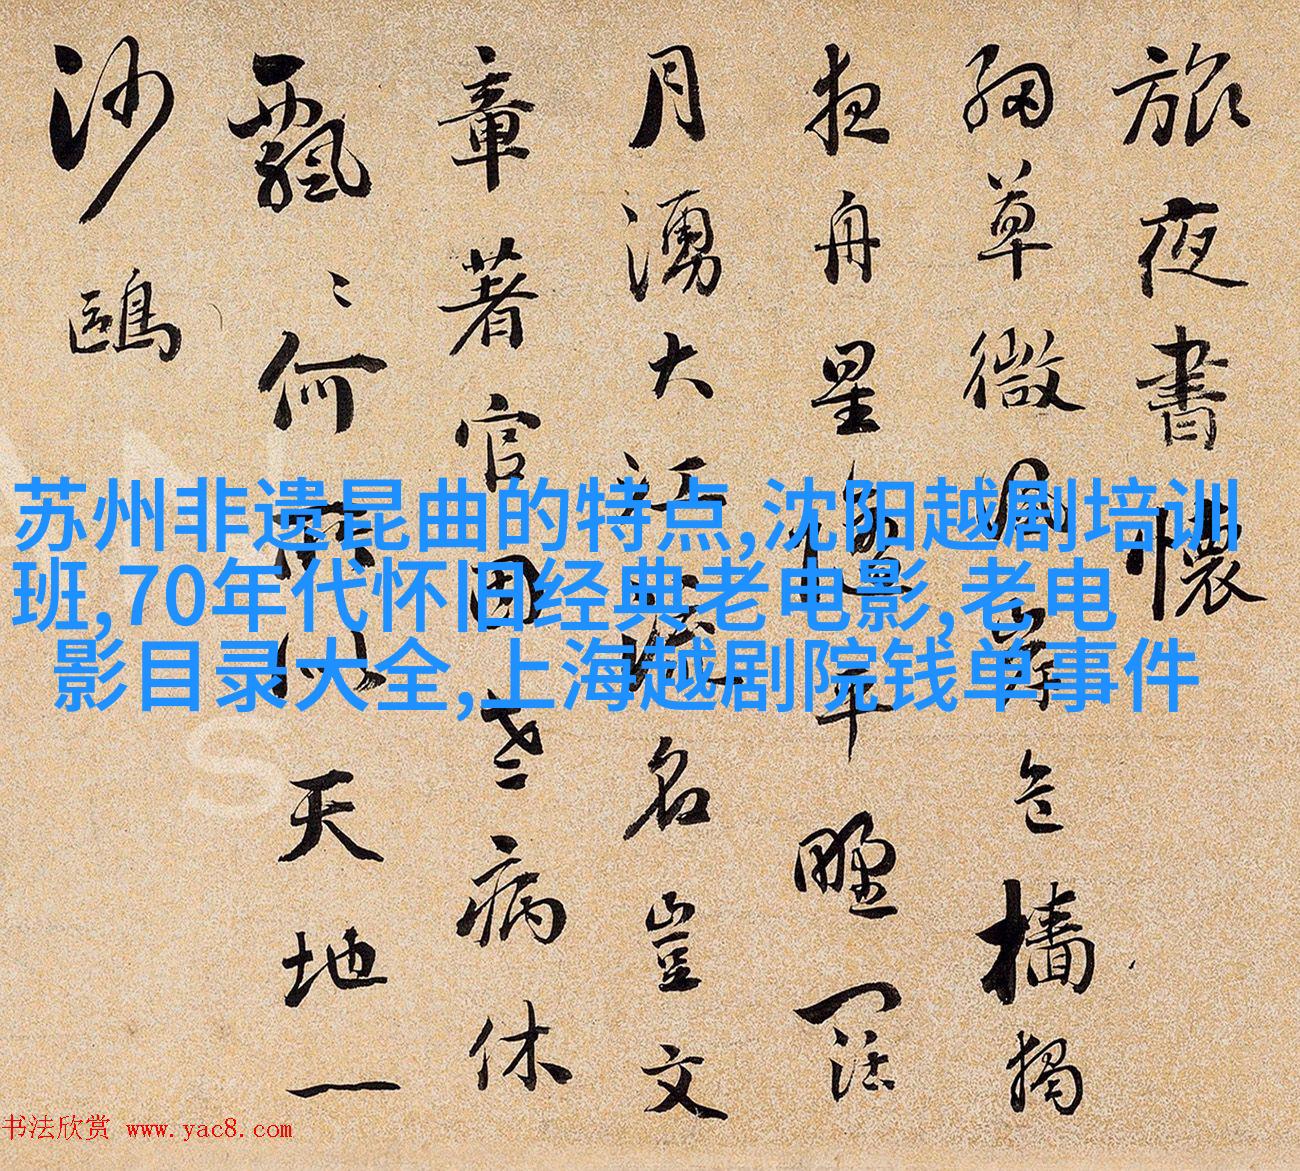 旅夜書懷
細草微風岸危檣獨
夜舟星垂平野闊
月湧大江流名豈文
章著官因老病休
飄〻何所似天地一
沙鷗
苏州非遗昆曲的特点,沈阳越剧培训
班,70年代怀旧经典老电影,老电
影目录大全,上海越剧院钱单事件
书法欣赏 www.yac8.com